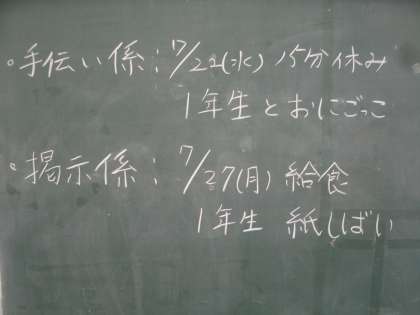 ・手伝い係:7/22(水) 15分休み
1年生とおにごっこ
・掲示係:7/27(月) 給食
1年生 紙しばい